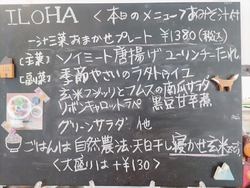 ILOHA 〈本日のメニュー〉おみそ汁付
一汁三菜おまかせプレート ¥1380(税込)
〈主菜〉ソイミート唐揚げ ユーリンチーだれ
〈副菜〉季節やさいのラタトゥイユ
玄米フジッリとフムスの南瓜サラダ
リボンキャロットラペ 黒豆甘辛煮
グリーンサラダ 他
ごはんは自然農法・天日干し寝かせ玄米
〈大盛りは+¥130〉